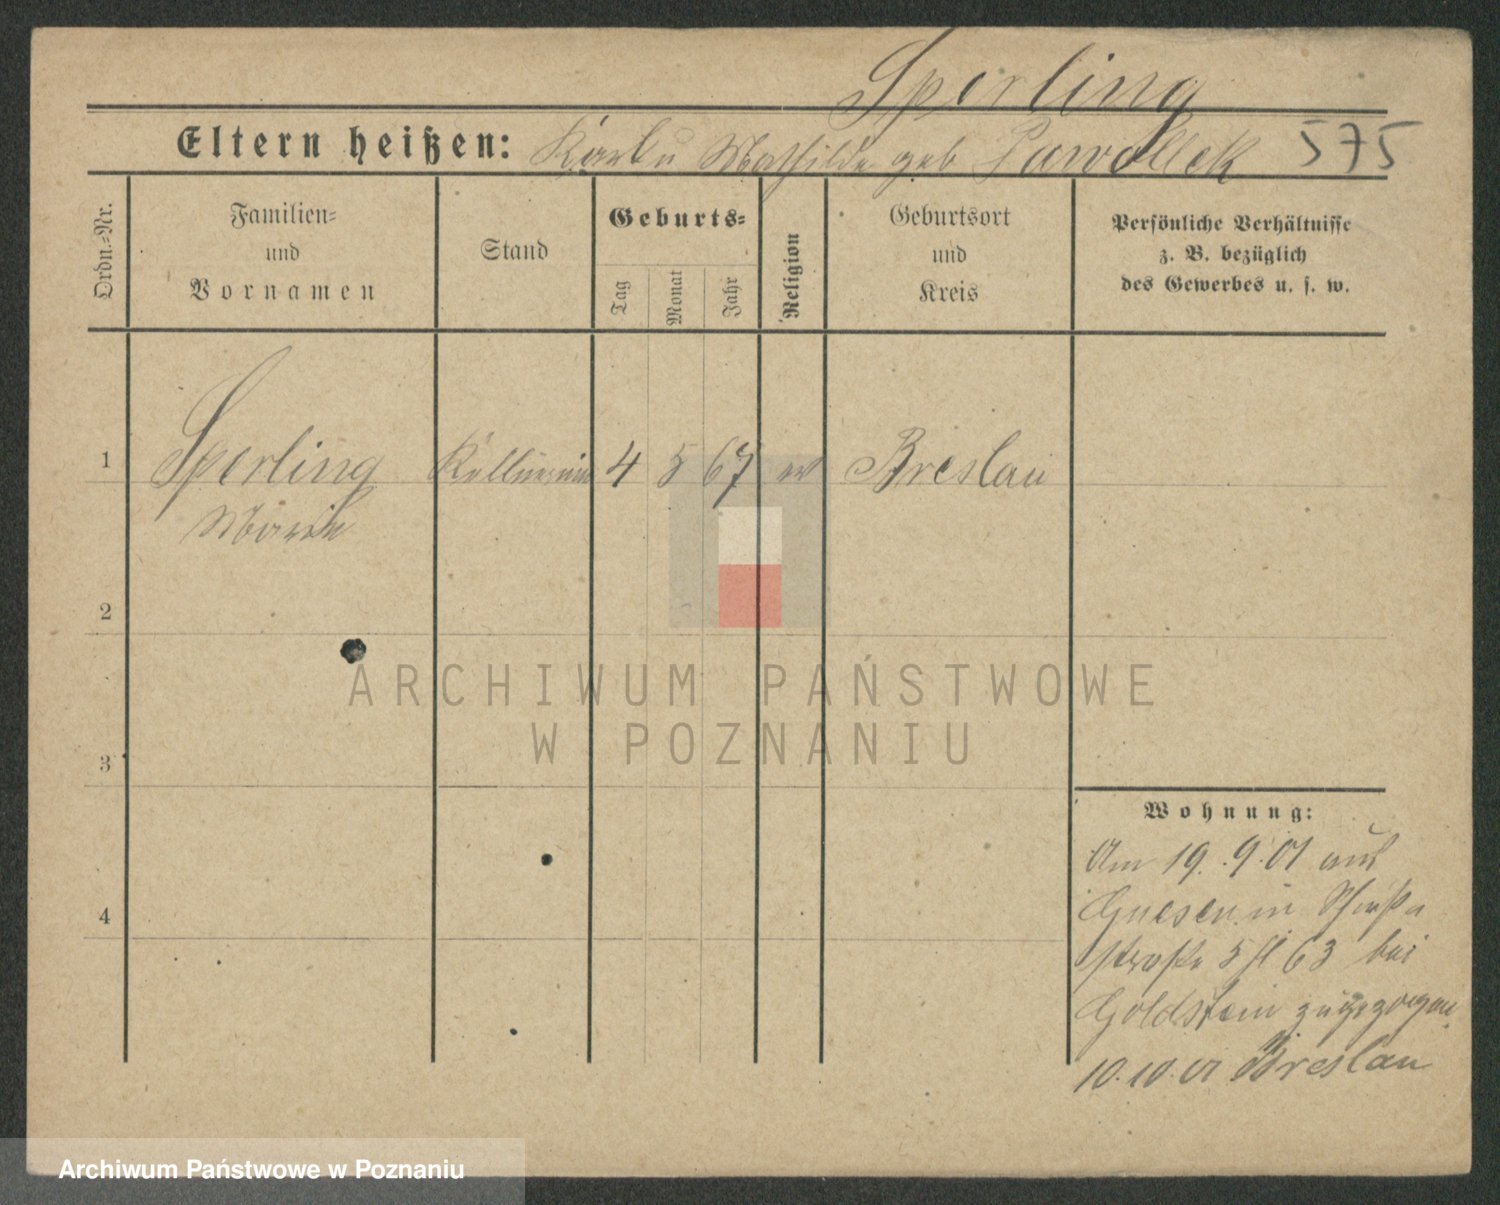 Sperling
Eltern heißen: Karl u Mathilde geb Pawollek 575
Ordn.-Nr.
Familien-
und
Vornamen
Stand
Geburts-
Tag
Monat
Jahr
Religion
Geburtsort
und
Kreis
Persönliche Verhältnisse
z. B. bezüglich
des Gewerbes u. s. w.
1 Sperling Kellnerin 4 5 67 ev Breslau
Marie
2
3
4
ARCHIWUM PAŃSTWOWE
W POZNANIU
Wohnung:
Am 19. 9. 01 aus
Gnesen in
straße 5 63 bei
Goldstein zugezogen
10.10.01 Breslau
Archiwum Państwowe w Poznaniu